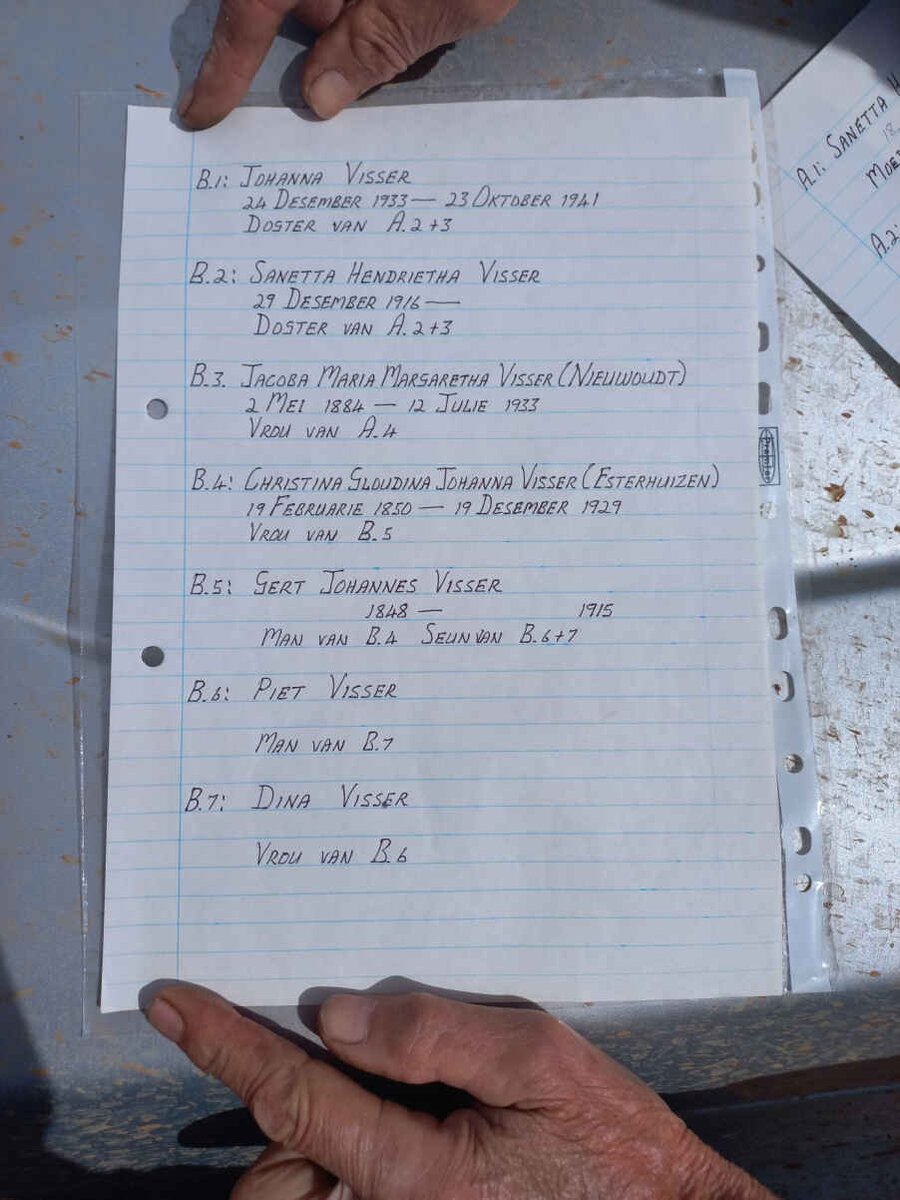 B.1: JOHANNA VISSER
24 DESEMBER 1933 — 23 OKTOBER 1941
DOGTER VAN A.2+3
B.2: SANETTA HENDRIETHA VISSER
29 DESEMBER 1916 —
DOGTER VAN A.2+3
B.3. JACOBA MARIA MARGARETHA VISSER (NIEUWOUDT)
2 MEI 1884 — 12 JULIE 1933
VROU VAN A.4
B.4: CHRISTINA GLOUDINA JOHANNA VISSER (ESTERHUIZEN)
19 FEBRUARIE 1850 — 19 DESEMBER 1929
VROU VAN B.5
B.5: GERT JOHANNES VISSER
1848 — 1915
MAN VAN B.4 SEUN VAN B.6+7
B.6: PIET VISSER
MAN VAN B.7
B.7: DINA VISSER
VROU VAN B.6
A.1: SANETTA H
18
MOED
A.2: